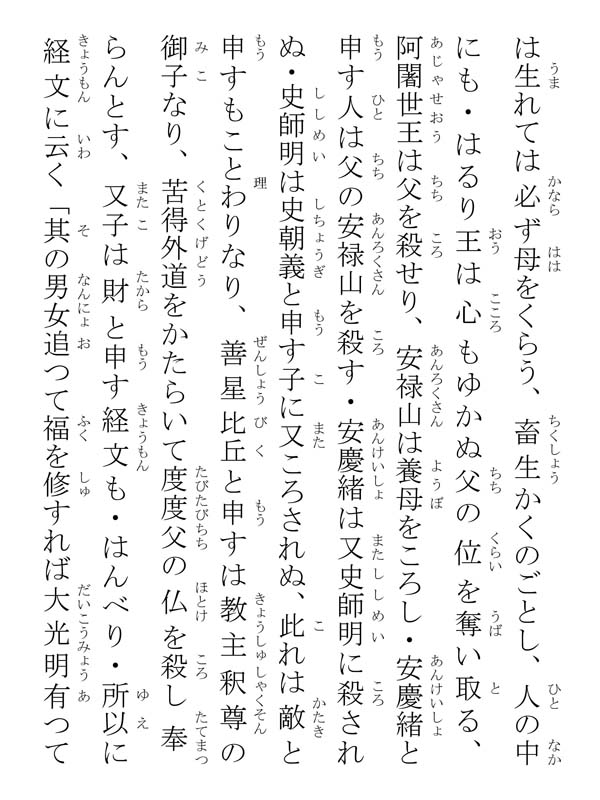 は生れては必ず母をくらう、畜生かくのごとし、人の中
にも・はるり王は心もゆかぬ父の位を奪い取る、
阿闍世王は父を殺せり、安禄山は養母をころし・安慶緒と
申す人は父の安禄山を殺す・安慶緒は又史師明に殺され
ぬ・史師明は史朝義と申す子に又ころされぬ、此れは敵と
申すもことわりなり、善星比丘と申すは教主釈尊の
御子なり、苦得外道をかたらいて度度父の仏を殺し奉
らんとす、又子は財と申す経文も・はんべり・所以に
経文に云く「其の男女追つて福を修すれば大光明有つて